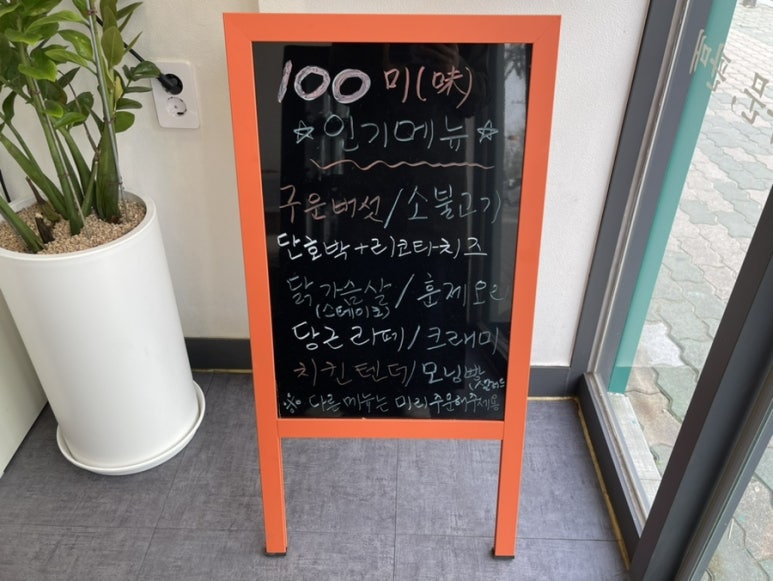 100 미(味)
☆인기메뉴☆
구운버섯/소불고기
단호박+리코타치즈
닭가슴살/훈제오리
(스테이크)
당근라페/크래미
치킨텐더/모닝빵
※ 다른메뉴는 미리주문해주세용